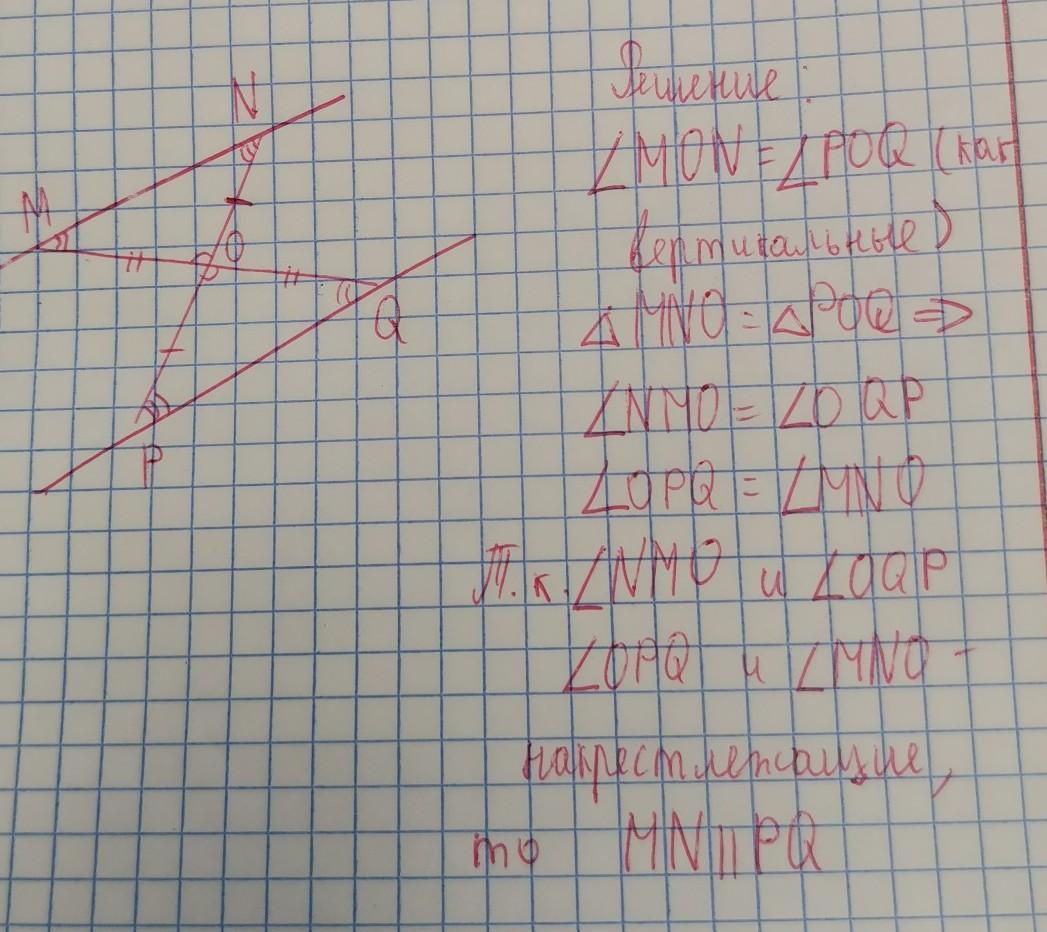 N
M
O
Q
P
Решение:
∠MON = ∠POQ (как
вертикальные)
△MNO = △POQ ⇒
∠NMO = ∠OQP
∠OPQ = ∠MNO
Т.к. ∠NMO и ∠OQP
∠OPQ и ∠MNO -
накрестлежащие,
то MN || PQ